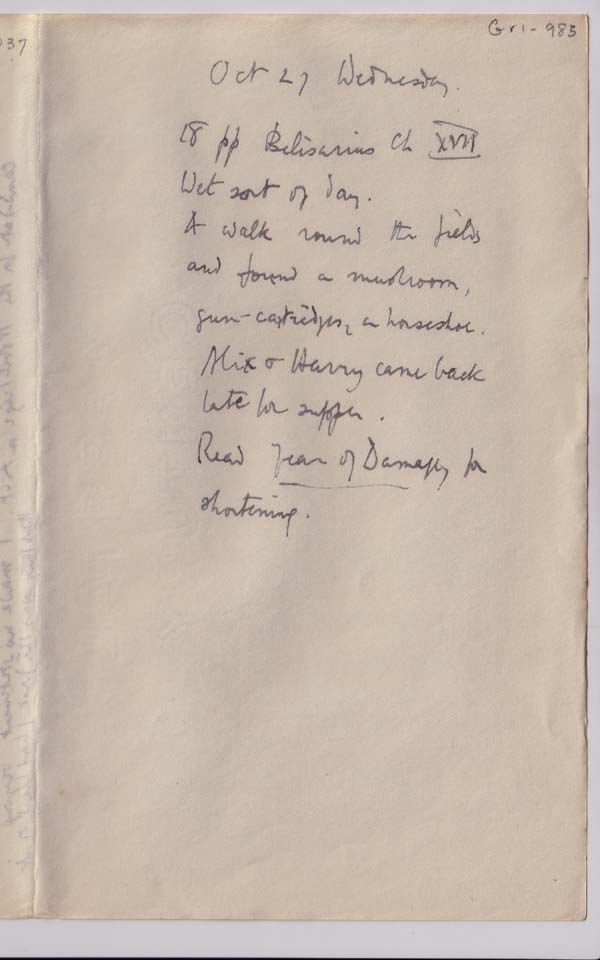 Gr1-983
37
Oct 27 Wednesday.
18 pp Belisarius Ch XVII
Wet sort of day.
A walk round the fields
and found a mushroom,
gun-cartridges, a horseshoe.
Alix & Harry came back
late for supper.
Read Year of Damage for
shortening.